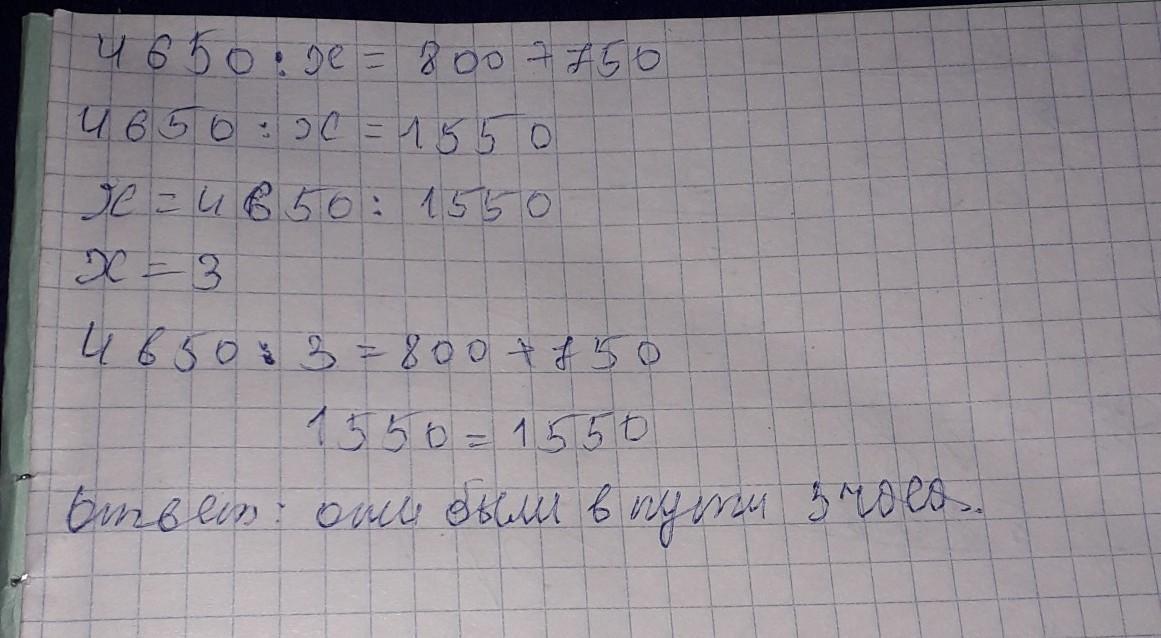 4650 : x = 800 + 750
4650 : x = 1550
x = 4650 : 1550
x = 3
4650 : 3 = 800 + 750
1550 = 1550
Ответ: они были в пути 3 часа.